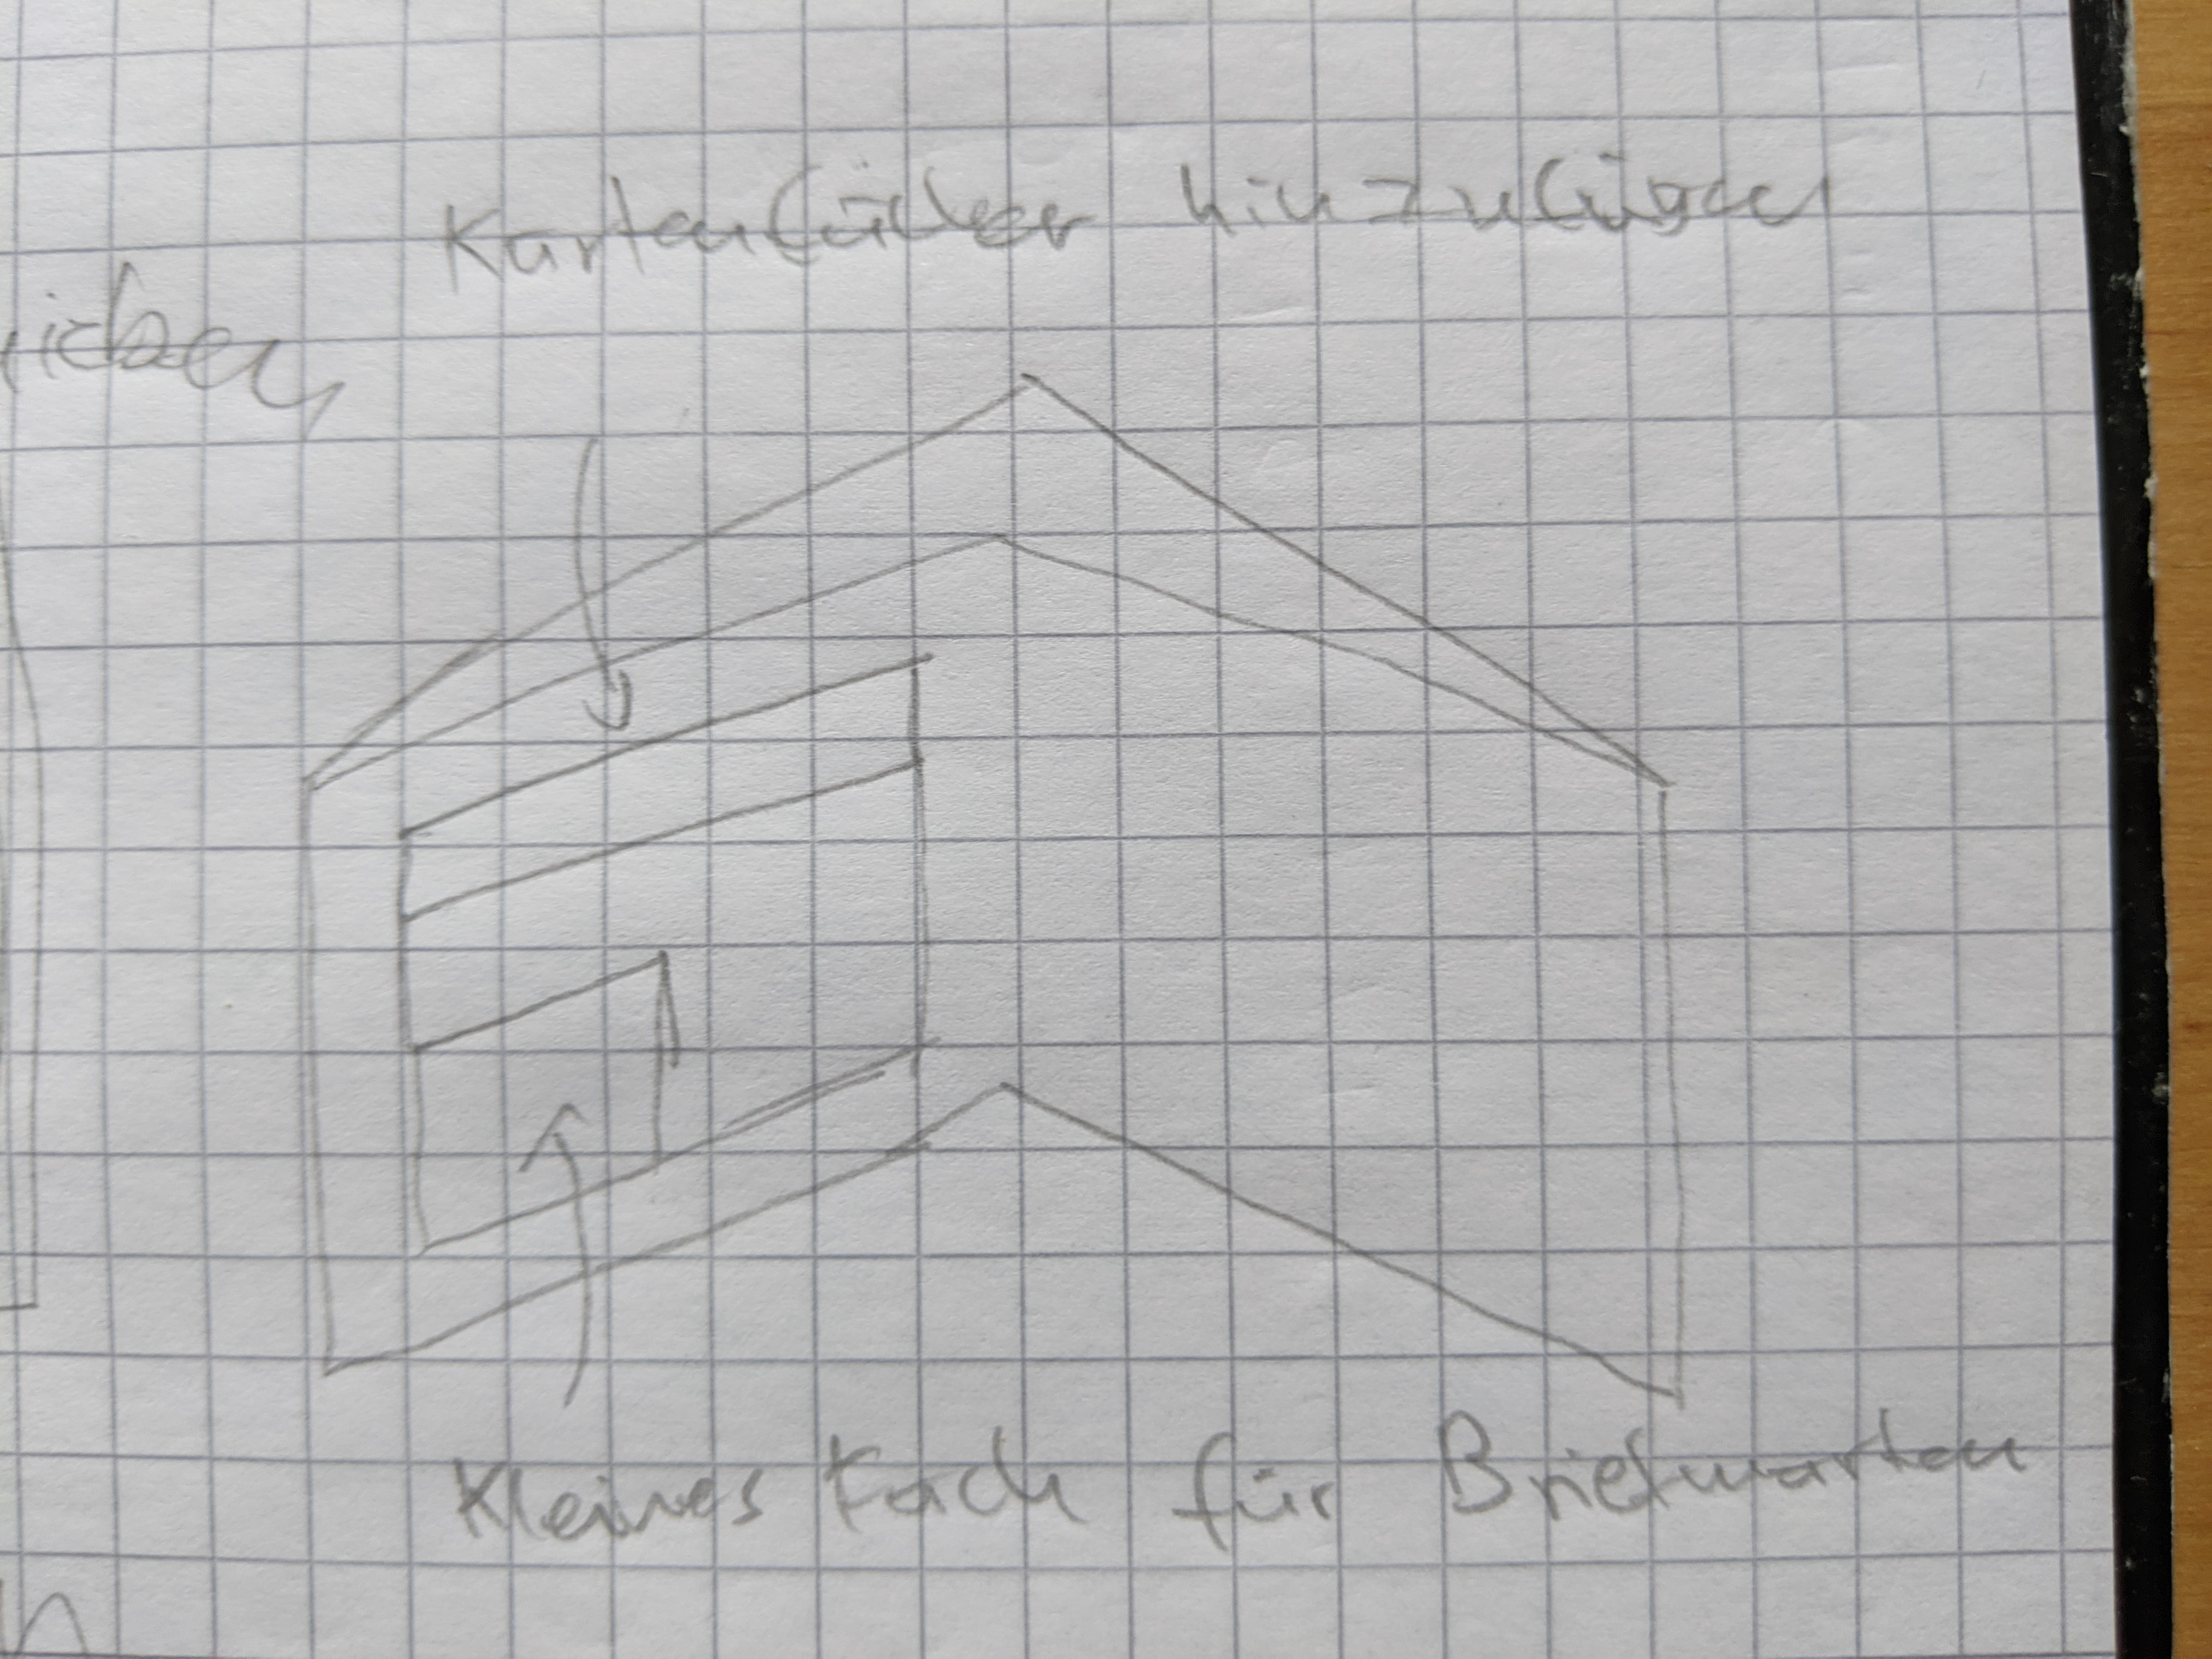 Kartenfächer hinzufügen
Kleines Fach für Briefmarken